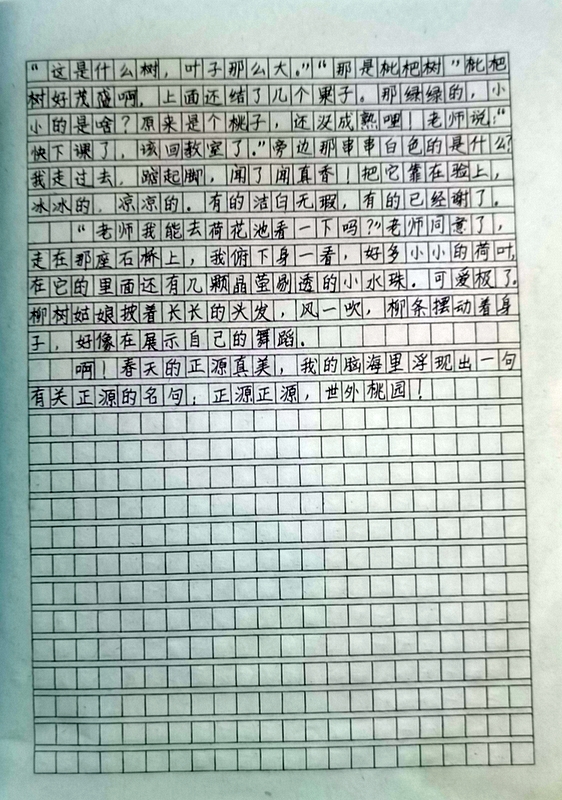 “这是什么树，叶子那么大。”“那是枇杷树”枇杷
树好茂盛啊，上面还结了几个果子。那绿绿的，小
小的是啥？原来是个桃子，还没成熟哩！老师说：“
快下课了，该回教室了。”旁边那串串白色的是什么？
我走过去，踮起脚，闻了闻真香！把它靠在脸上，
冰冰的，凉凉的。有的洁白无瑕，有的已经谢了。
“老师我能去荷花池看一下吗？”老师同意了，
走在那座石桥上，我俯下身一看，好多小小的荷叶，
在它的里面还有几颗晶莹剔透的小水珠。可爱极了。
柳树姑娘披着长长的头发，风一吹，柳条摆动着身
子，好像在展示自己的舞蹈。
啊！春天的正源真美，我的脑海里浮现出一句
有关正源的名句：正源正源，世外桃园！